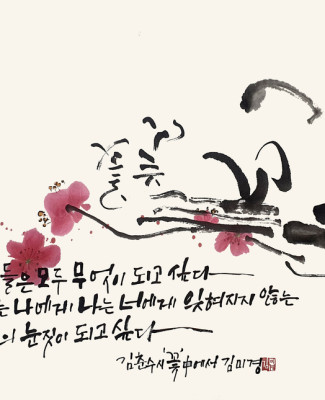 들은 모두 무엇이 되고 싶다
는 나에게 나는 너에게 잊혀지지 않는
의 눈짓이 되고 싶다
김춘수 시 '꽃' 中에서 김미경